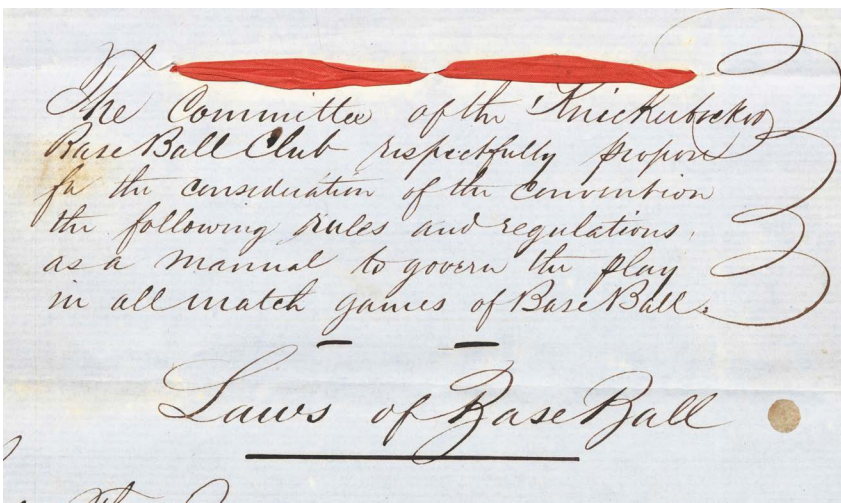 The Committee of the Knickerbocker
Base Ball Club respectfully propose
for the consideration of the convention
the following rules and regulations,
as a manual to govern the play
in all match games of Base Ball.
Laws of Base Ball
The